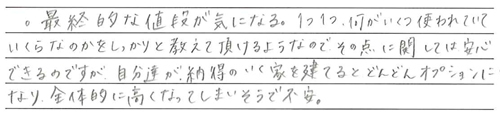 。最終的な値段が気になる。1つ1つ、何がいくつ使われていて
いくらなのかをしっかりと教えて頂けるようなのでその点に関しては安心
できるのですが、自分達が、納得のいく家を建てるとどんどんオプションに
なり、全体的に高くなってしまいそうで不安。